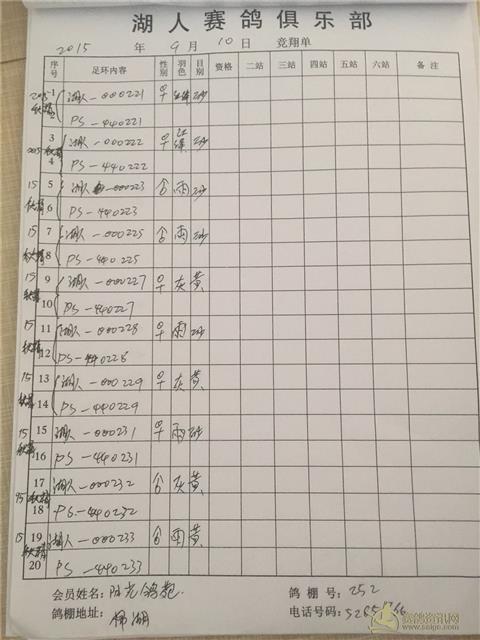 湖人赛鸽俱乐部
2015 年 9 月 10 日 竞翔单
序号 足环内容 性别 羽色 目别 资格 二站 三站 四站 五站 六站 备注
1 湖人-000221 砂
2 PS-440221
3 湖人-000222 砂
4 PS-440222
15 5 湖人-000223 雨 砂
6 PS-440223
15 7 湖人-000225 雨 砂
8 PS-440225
15 9 湖人-000227 灰 黄
10 PS-440227
15 11 湖人-000228 雨 砂
12 PS-440228
15 13 湖人-000229 灰 黄
14 PS-440229
15 15 湖人-000231 雨 砂
16 PS-440231
17 湖人-000232 灰 黄
15 18 PS-440232
15 19 湖人-000233 雨 黄
20 PS-440233
会员姓名: 鸽棚号: 252
鸽棚地址: 电话号码:
赛鸽资讯网
www.saige.com